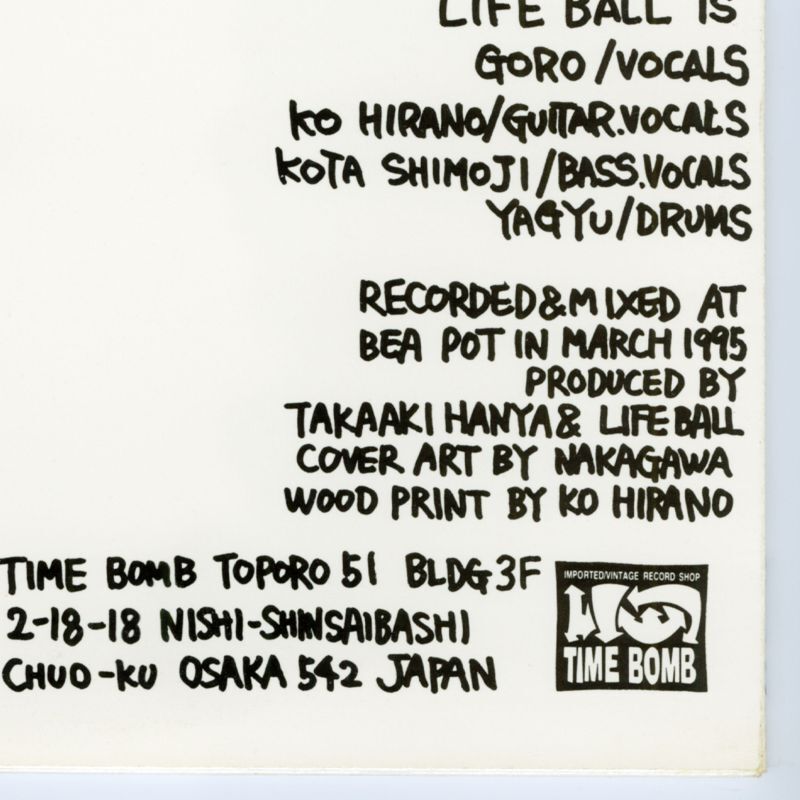 LIFE BALL IS
GORO/VOCALS
KO HIRANO/GUITAR.VOCALS
KOTA SHIMOJI/BASS.VOCALS
YAGYU/DRUMS
RECORDED&MIXED AT
BEA POT IN MARCH 1995
PRODUCED BY
TAKAAKI HANYA& LIFE BALL
COVER ART BY NAKAGAWA
WOOD PRINT BY KO HIRANO
TIME BOMB TOPORO 51 BLDG 3F
2-18-18 NISHI-SHINSAIBASHI
CHUO-KU OSAKA 542 JAPAN
IMPORTED/VINTAGE RECORD SHOP
TIME BOMB